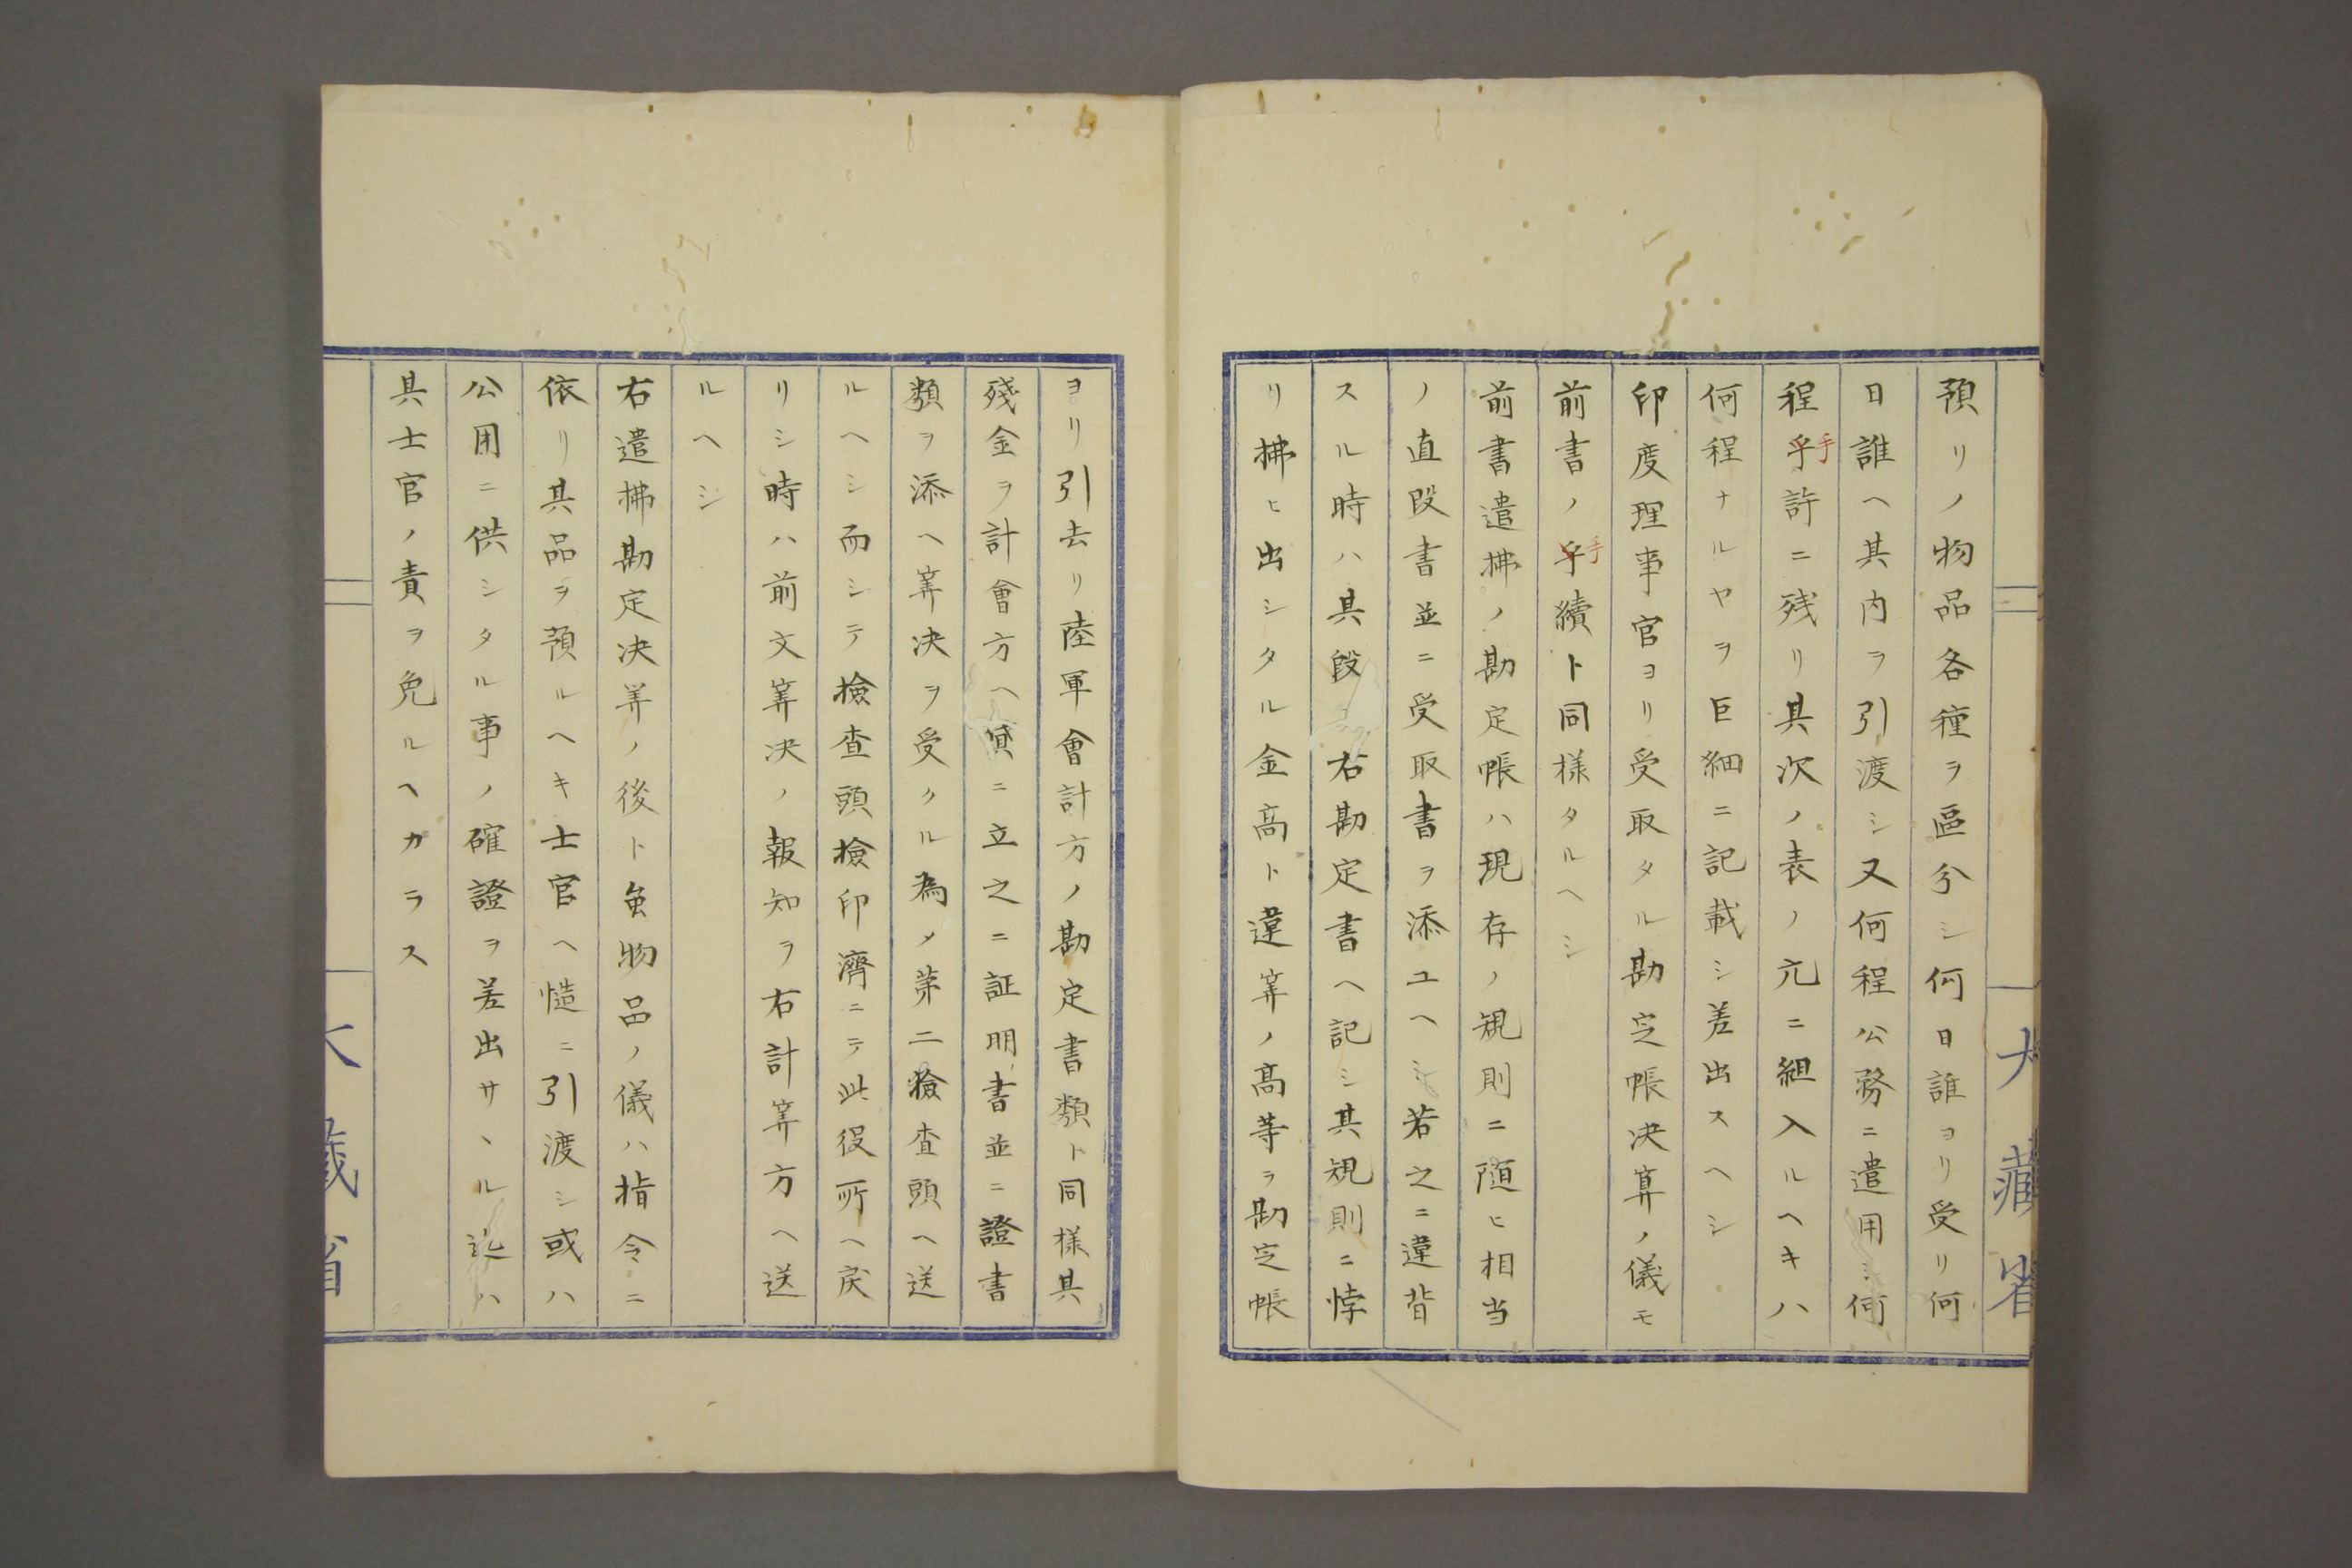 預リノ物品各種ヲ區分シ何日誰ヨリ受リ何
日誰ヘ其内ヲ引渡シ又何程公務ニ遣用シ何
程乎手許ニ残リ其次ノ表ノ亢ニ組入ルヘキハ
何程ナルヤヲ巨細ニ記載シ差出スヘシ
印度理事官ヨリ受取タル勘定帳决算ノ儀モ
前書ノ乎手續ト同様タルヘシ
前書遣拂ノ勘定帳ハ現存ノ規則ニ随ヒ相当
ノ直段書並ニ受取書ヲ添ユヘシ若之ニ違背
スル時ハ其段右勘定書ヘ記シ其規則ニ悖
リ拂ヒ出シタル金高ト違筭ノ高等ヲ勘定帳
大藏省
ヨリ引去リ陸軍會計方ノ勘定書類ト同様其
殘金ヲ計會方ヘ貸ニ立之ニ証明書並ニ證書
類ヲ添ヘ筭决ヲ受クル為メ第二撿査頭ヘ送
ルヘシ而シテ撿査頭撿印濟ニテ此役所ヘ戻
リシ時ハ前文筭决ノ報知ヲ右計筭方ヘ送
ルヘシ
右遣拂勘定决筭ノ後ト虽物品ノ儀ハ指令ニ
依リ其品ヲ預ルヘキ士官ヘ慥ニ引渡シ或ハ
公用ニ供シタル事ノ確證ヲ差出サヽル迄ハ
其士官ノ責ヲ免ルヘカラス
大藏省